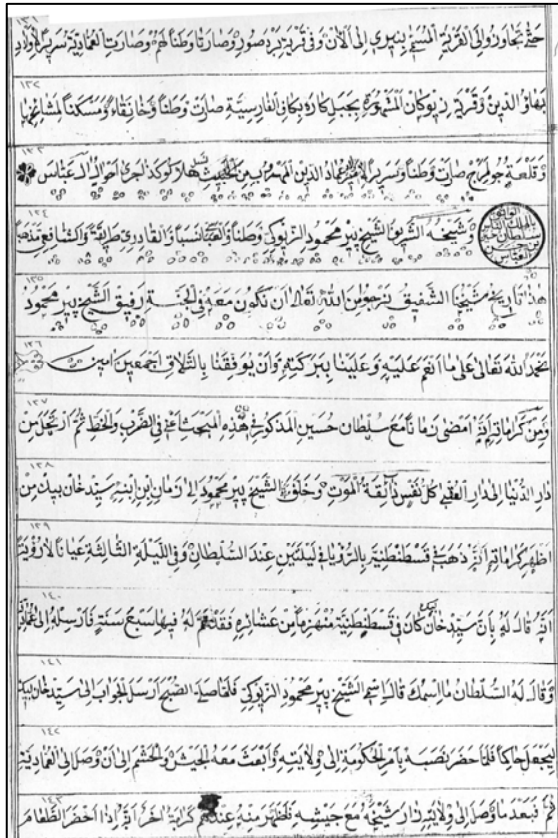 ١٣١
حتى تجاوز ولي القرية المسمى بنيري إلى الآن وفي قرية صارت وطنا لهم وصارت العمادية سريرا لأولاد
١٣٢
بهاء الدين وقرية زيوكان المشهورة بجبل كاره بكاو الفارسية صارت وطنا وخانقاه ومسكنا لمشايخها
١٣٣
وقلعة جولمرج صارت وطنا وسريرا عماد الدين هلاكو كذا جرى أحوال آل عباس
١٣٤
وشيخه الشيخ پير محمود الزيوكي وطنا والعباسي نسبا والقادري طريقة والشافعي مذهبا
١٣٥
هذا تاريخ شيخنا الشفيق نرجو من الله تعالى أن نكون معه في الجنة رفيق الشيخ پير محمود
١٣٦
نحمد الله تعالى على ما أنعم عليه وعلينا ببركته وأن يوفقنا بالتلاق أجمعين آمين
١٣٧
ومن كراماته أنه أمضى زمانا مع سلطان حسين المذكور في هذه المبحث أعني في الضرب والخط ثم ارتحل من
١٣٨
دار الدنيا إلى دار العقبى كل نفس ذائقة الموت وخلف الشيخ پير محمود إلى زمان ابن ابنه سيد خان بيك من
١٣٩
أظهر كراماته أنه ذهب في قسطنطنية بالرؤيا في ليلتين عند السلطان وفي الليلة الثالثة عيانا لا رؤية
١٤٠
أنه قال له بأن سيد خان بيك كان في قسطنطنية منهزما من عشائره فقد تم له فيها سبع سنة فأرسله إلى عمادية
١٤١
وقال له السلطان ما اسمك قال اسم الشيخ پير محمود الزيوكي فلما صلى الصبح أرسل الجواب إلى سيد خان بيك
١٤٢
ليجعل حاكما فلما حضر نصبه بأمر الحكومة إلى ولايته وابعث معه الجيش والحشم إلى أن وصل إلى العمادية
١٤٣
ثم بعد ما وصل إلى ولايته زار شيخه مع جيشه فظهر منه عندهم كرامة أخرى إذا أحضر الطعام